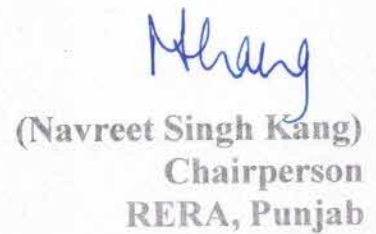 (Navreet Singh Kang)
Chairperson
RERA, Punjab